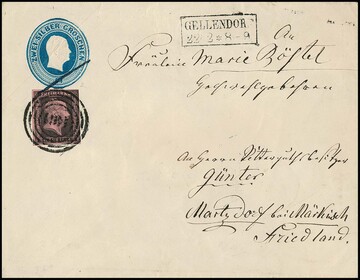 GELLENDORF
22 2 * 8-9
ZWEI SILBER GROSCHEN
An
Fräulein Marie Böstel
Hochwohlgeboren
An Herrn Rittergutsbesitzer
Günter
Martzdorf bei Märkisch
Friedland.